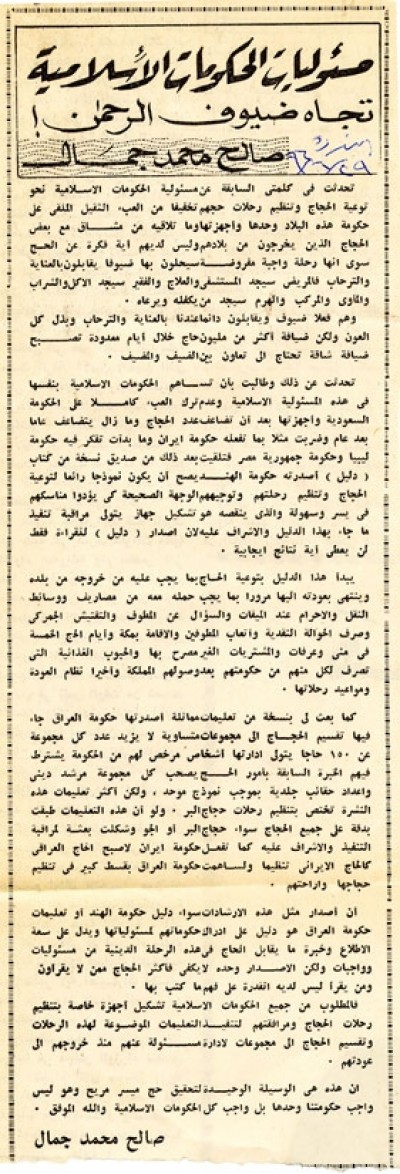 مسئوليات الحكومات الإسلامية
تجاه ضيوف الرحمن !
صالح محمد جمال
تحدثت فى كلمتى السابقة عن مسئولية الحكومات الاسلامية نحو
توعية الحجاج وتنظيم رحلات حجهم تخفيفا من العبء الثقيل الملقى على
حكومة هذه البلاد وحدها وأجهزتها وما تلاقيه من مشاق مع بعض
الحجاج الذين يخرجون من بلادهم وليس لديهم أية فكرة عن الحج
سوى انها رحلة واجبة مفروضة سيحلون بها ضيوفا يقابلون بالعناية
والترحاب فالمريض سيجد المستشفى والعلاج والفقير سيجد الاكل والشراب
والمأوى والمركب والهرم سيجد من يكفله ويرعاه .
وهم فعلا ضيوف ويقابلون دائما عندنا بالعناية والترحاب وبذل كل
العون ولكن ضيافة أكثر من مليون حاج خلال أيام معدودة تصبح
ضيافة شاقة تحتاج الى تعاون بين الضيف والمضيف .
تحدثت عن ذلك وطالبت بأن تساهم الحكومات الاسلامية بنفسها
فى هذه المسئولية الاسلامية وعدم ترك العبء كاملا على الحكومة
السعودية وأجهزتها بعد أن تضاعف عدد الحجاج وما زال يتضاعف عاما
بعد عام وضربت مثلا بما تفعله حكومة ايران وما بدأت تفكر فيه حكومة
ليبيا وحكومة جمهورية مصر فتلقيت بعد ذلك من صديق نسخة من كتاب
( دليل ) أصدرته حكومة الهند يصح أن يكون نموذجا رائعا لتوعية
الحجاج وتنظيم رحلتهم وتوجيههم الوجهة الصحيحة كى يؤدوا مناسكهم
فى يسر وسهولة والذى ينقصه هو تشكيل جهاز يتولى مراقبة تنفيذ
ما جاء بهذا الدليل والاشراف عليه لان اصدار ( دليل ) للقراءة فقط
لن يعطى أية نتائج ايجابية .
يبدأ هذا الدليل بتوعية الحاج بما يجب عليه من خروجه من بلده
وينتهى بعودته اليها مرورا بما يجب حمله معه من مصاريف ووسائط
النقل والاحرام عند الميقات والسؤال عن المطوف والتفتيش الجمركى
وصرف الحوالة النقدية وأتعاب المطوفين والاقامة بمكة وأيام الحج الخمسة
فى منى وعرفات والمشتريات الغير مصرح بها والحبوب الغذائية التى
تصرف لكل منهم من حكومتهم بعد وصولهم المملكة وأخيرا نظام العودة
ومواعيد رحلاتها .
كما بعث لى بنسخة من تعليمات مماثلة أصدرتها حكومة العراق جاء
فيها تقسيم الحجاج الى مجموعات متساوية لا يزيد عدد كل مجموعة
عن ١٥٠ حاجا يتولى ادارتها أشخاص مرخص لهم من الحكومة يشترط
فيهم الخبرة السابقة بأمور الحج يصحب كل مجموعة مرشد دينى
واعداد حقائب جلدية بموجب نموذج موحد ، ولكن أكثر تعليمات هذه
النشرة تختص بتنظيم رحلات حجاج البر . ولو أن هذه التعليمات طبقت
بدقة على جميع الحجاج سواء حجاج البر أو الجو وشكلت بعثة لمراقبة
التنفيذ والاشراف عليه كما تفعل حكومة ايران لاصبح الحاج العراقى
كالحاج الايرانى تنظيما ولساهمت حكومة العراق بقسط كبير فى تنظيم
حجاجها واراحتهم .
أن أصدار مثل هذه الارشادات سواء دليل حكومة الهند أو تعليمات
حكومة العراق هو دليل على ادراك حكوماتهم لمسئولياتها ويدل على سعة
الاطلاع وخبرة ما يقابل الحاج فى هذه الرحلة الدينية من مسئوليات
وواجبات ولكن الاصدار وحده لا يكفى فأكثر الحجاج ممن لا يقرأون
ومن يقرأ ليس لديه القدرة على فهم ما كتب بها .
فالمطلوب من جميع الحكومات الاسلامية تشكيل أجهزة خاصة بتنظيم
رحلات الحجاج ومرافقتهم لتنفيذ التعليمات الموضوعة لهذه الرحلات
وتقسيم الحجاج الى مجموعات لادارة مسئولة عنهم منذ خروجهم الى
عودتهم .
ان هذه هى الوسيلة الوحيدة لتحقيق حج ميسر مريح وهو ليس
واجب حكومتنا وحدها بل واجب كل الحكومات الاسلامية والله الموفق .
صالح محمد جمال